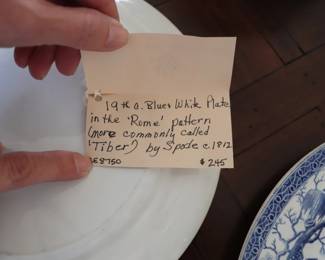 19th c. Blue & White Plate
in the 'Rome' pattern
(more commonly called
'Tiber') by Spode c.1812
SE8750 $245